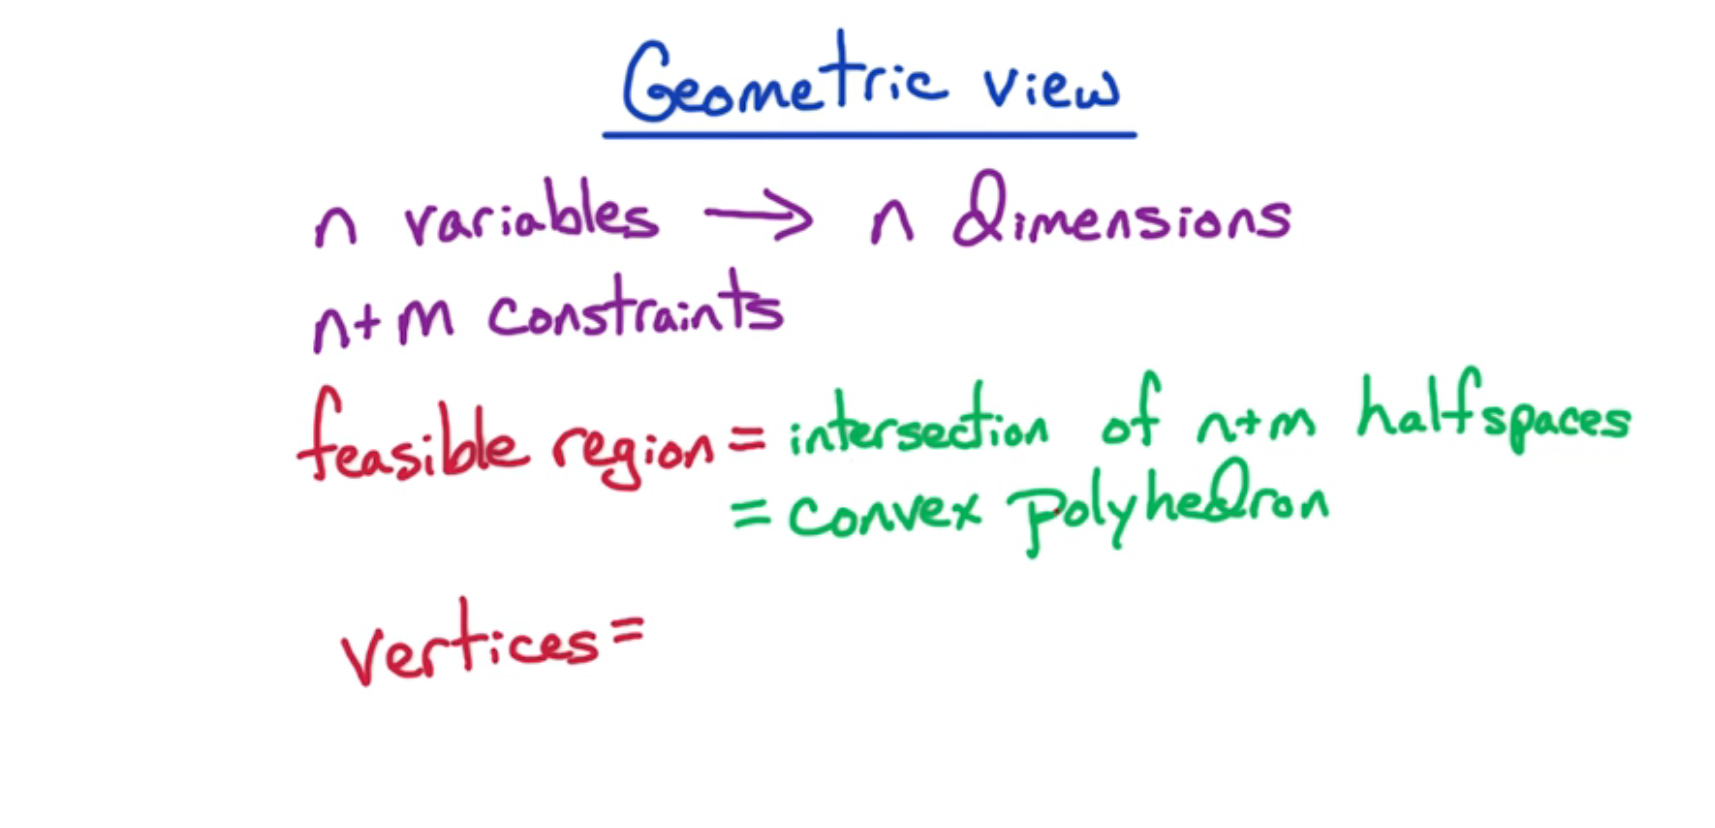 Geometric view
n variables → n dimensions
n+m constraints
feasible region = intersection of n+m halfspaces
= convex polyhedron
vertices =